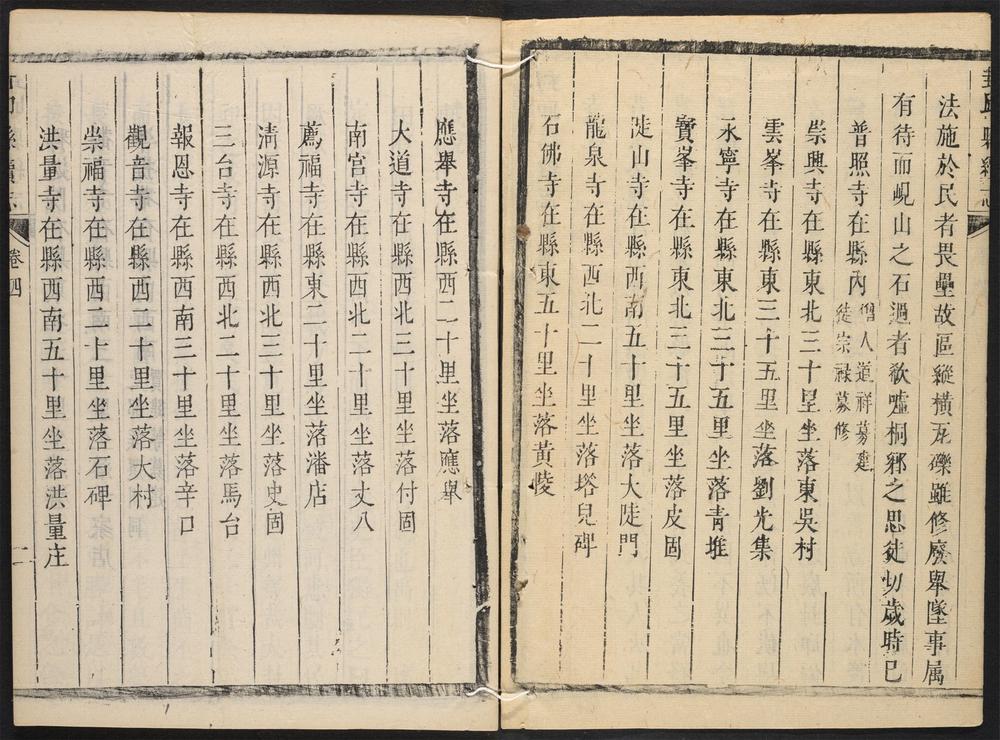 封邱縣續志
法施於民者畏壘故區縱橫瓦礫雖修廢舉墜事属
有待而峴山之石過者欷噓桐鄉之思徒切歲時已
普照寺在縣內僧人道祥募建徒宗禄募修
崇興寺在縣東北三十里坐落東吳村
雲峯寺在縣東三十五里坐落劉光集
永寧寺在縣東北三十五里坐落青堆
寳峯寺在縣東北三十五里坐落皮固
陡山寺在縣西南五十里坐落大陡門
龍泉寺在縣西北二十里坐落塔兒碑
石佛寺在縣東五十里坐落黄陵
應舉寺在縣西二十里坐落應舉
大道寺在縣西北三十里坐落付固
南宮寺在縣西北二十里坐落丈八
薦福寺在縣東二十里坐落潘店
清源寺在縣西北三十里坐落史固
三台寺在縣西北二十里坐落馬台
報恩寺在縣西南三十里坐落辛口
觀音寺在縣西二十里坐落大村
崇福寺在縣西二十里坐落石碑
洪量寺在縣西南五十里坐落洪量庄
卷四
二